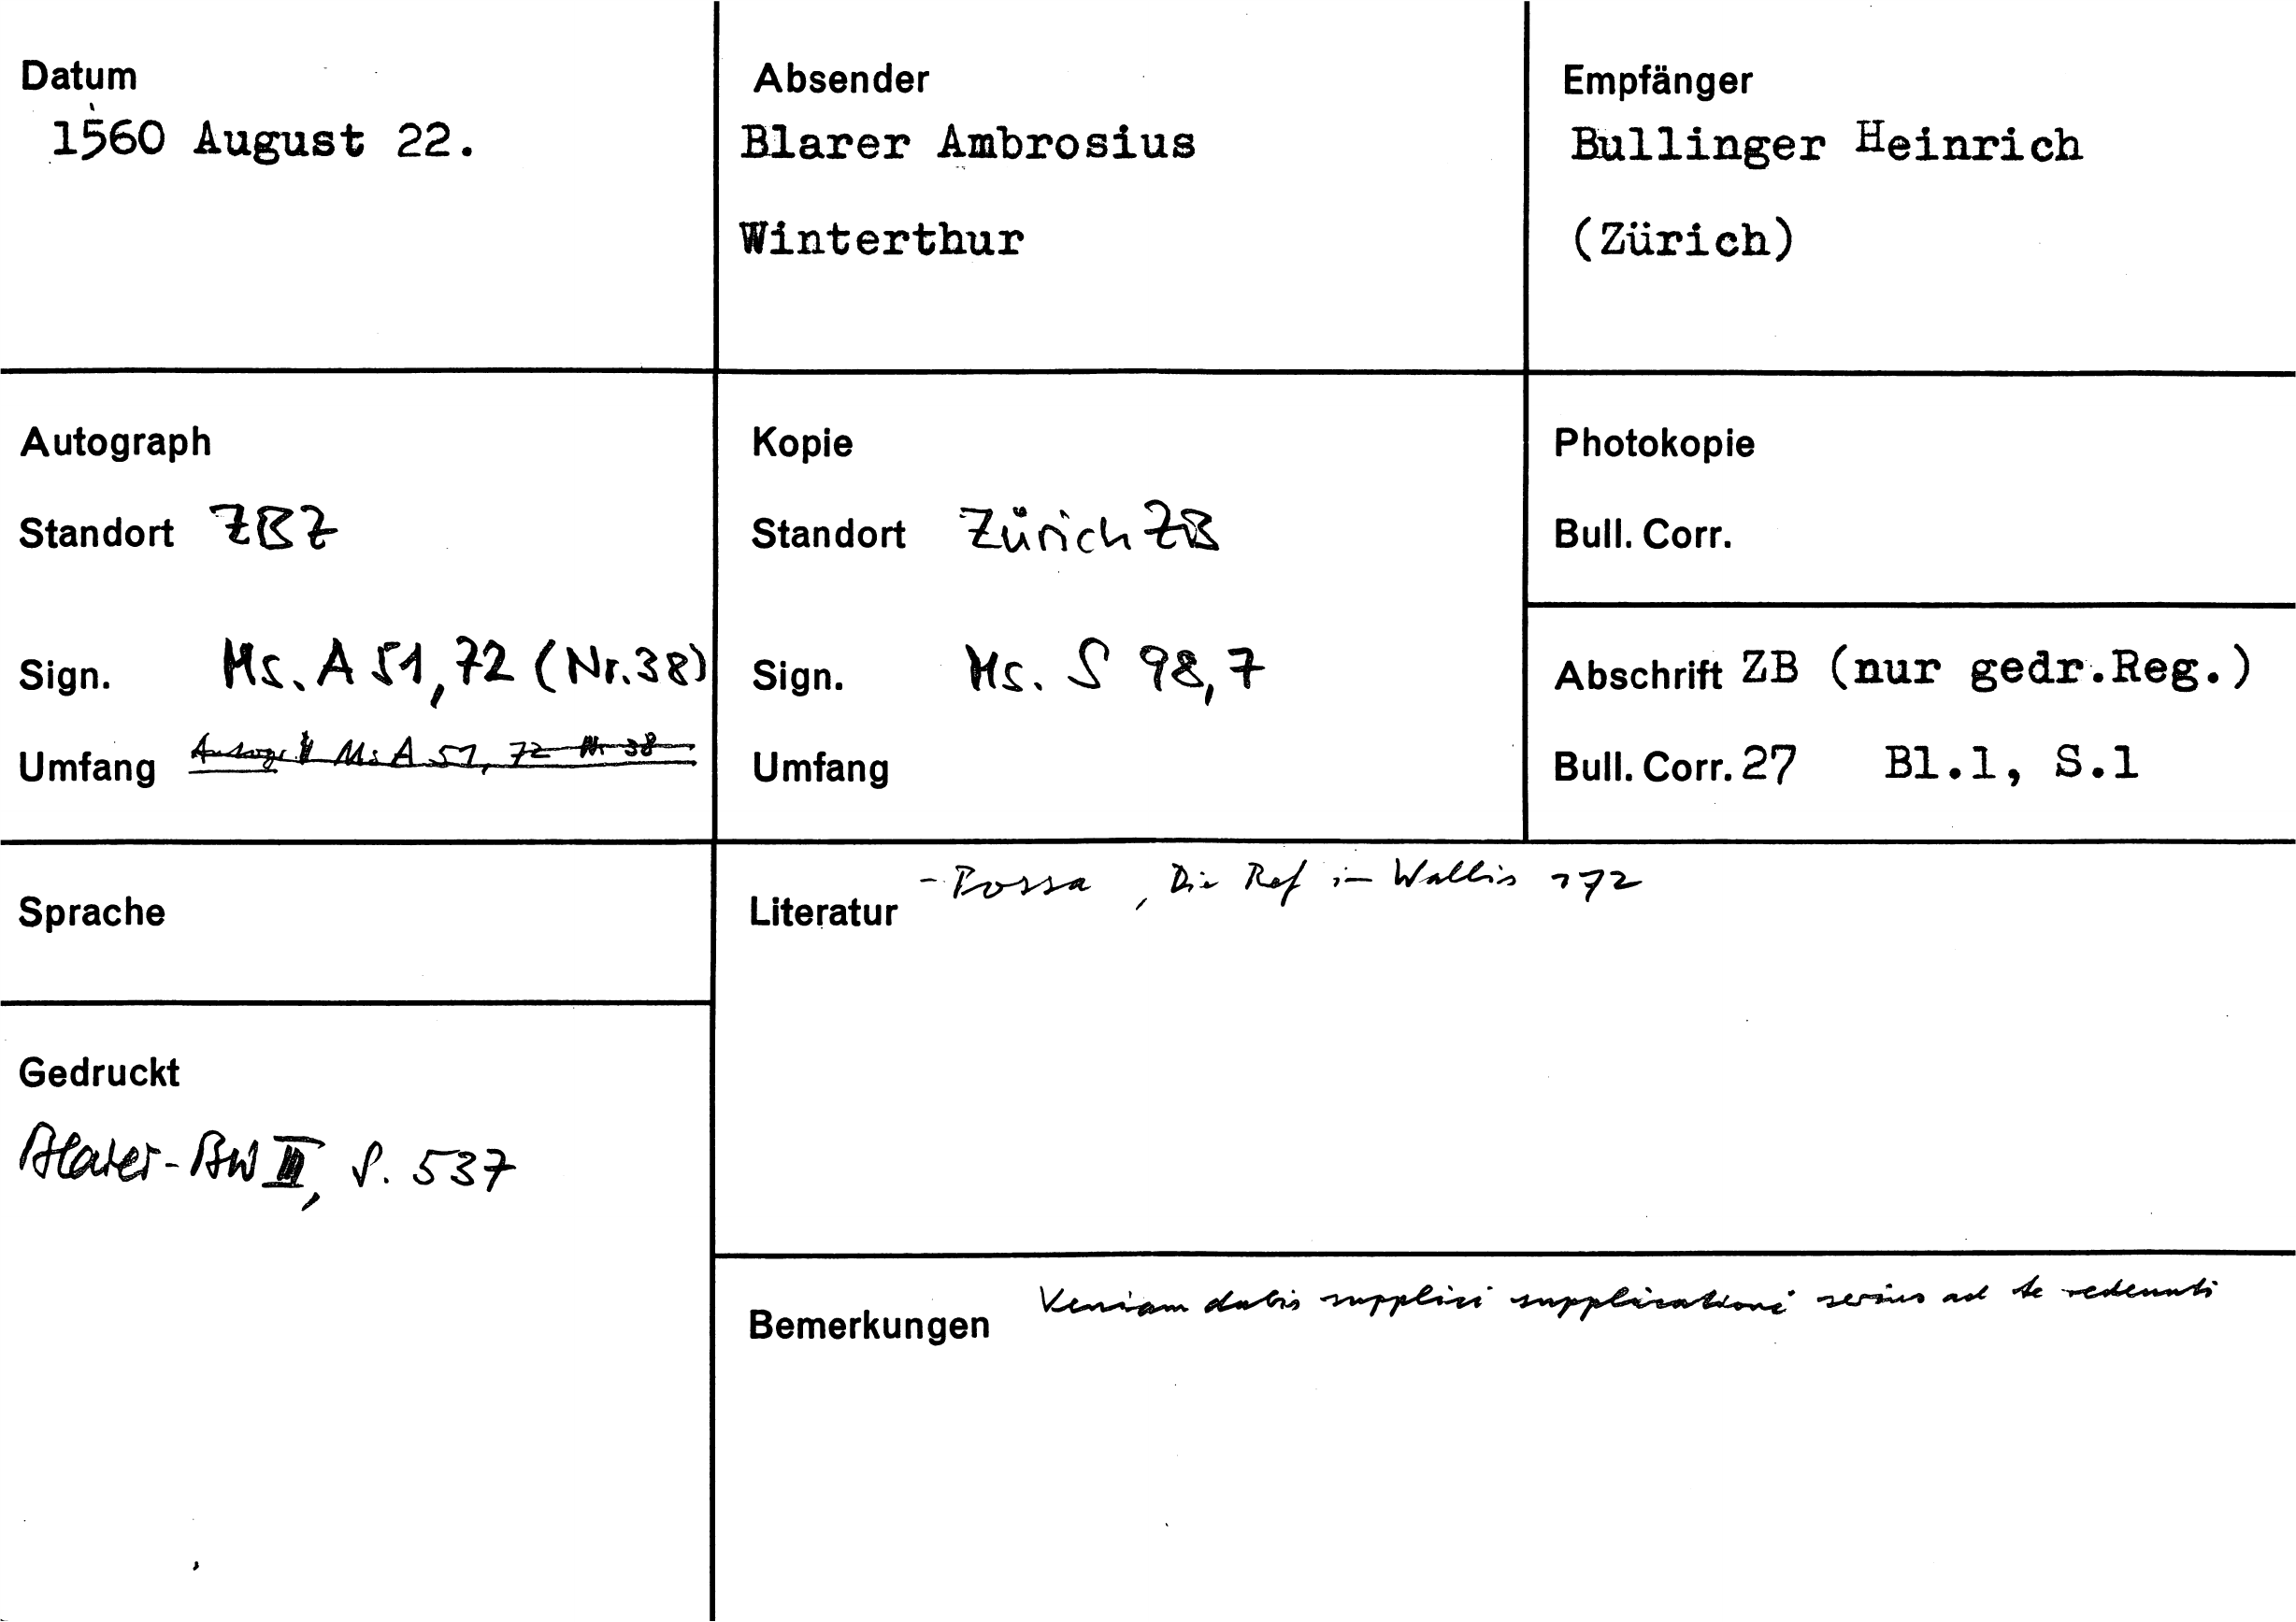 Datum
1560 August 22.
Absender
Blarer Ambrosius
Winterthur
Empfänger
Bullinger Heinrich
(Zürich)
Autograph
Standort ZBZ
Sign. Ms. A 51, 72 (Nr. 38)
Umfang Ms A 51, 72 Nr 38
Kopie
Standort Zürich ZB
Sign. Ms. S 98, 7
Umfang
Photokopie
Bull. Corr.
Abschrift ZB (nur gedr. Reg.)
Bull. Corr. 27 Bl.1, S.1
Sprache
Literatur - Possa, Die Ref im Wallis 172
Gedruckt
Blarer-BW III, S. 537
Bemerkungen Veniam dabis supplici supplicationi serius ad te